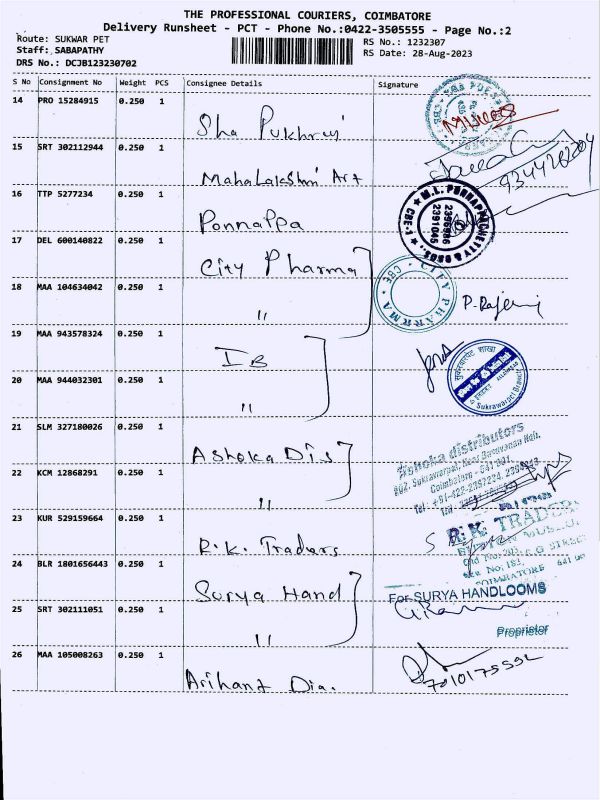 THE PROFESSIONAL COURIERS, COIMBATORE
Delivery Runsheet - PCT - Phone No.:0422-3505555 - Page No.:2
Route: SUKWAR PET
RS No.: 1232307
Staff: SABAPATHY
RS Date: 28-Aug-2023
DRS No.: DCJB123230702
S No Consignment No Weight PCS Consignee Details Signature
14 PRO 15284915 0.250 1
Sha Pukhraj
15 SRT 302112944 0.250 1
MahaLakshmi Art
9344262204
16 TTP 5277234 0.250 1
Ponnappa
M.L. PONNAPPA CHETTY & BROS.
CBE-1
2396986
2391045
17 DEL 600140822 0.250 1
City Pharma
CITY PHARMA
CBE
18 MAA 104634042 0.250 1
"
P. Rajeni
19 MAA 943578324 0.250 1
IB
Sukrawarpet Branch
20 MAA 944032301 0.250 1
"
21 SLM 327180026 0.250 1
Ashoka Dis
Ashoka distributors
Coimbatore - 641 001.
22 KCM 12868291 0.250 1
"
23 KUR 529159664 0.250 1
R.K. Traders
R.K. TRADERS
COIMBATORE
24 BLR 1801656443 0.250 1
Surya Hand
For SURYA HANDLOOMS
Proprietor
25 SRT 302111051 0.250 1
"
26 MAA 105008263 0.250 1
Arihant Dia.